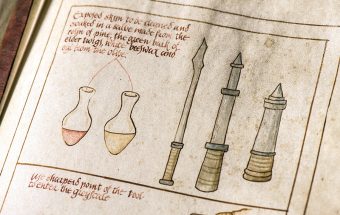 Exposed skin to be cleaned and
soaked in a salve made from the
resin of pine, the green bark of
elder twigs, white beeswax and
oil from the olive.
Use sharpened point of the tool
to enter the